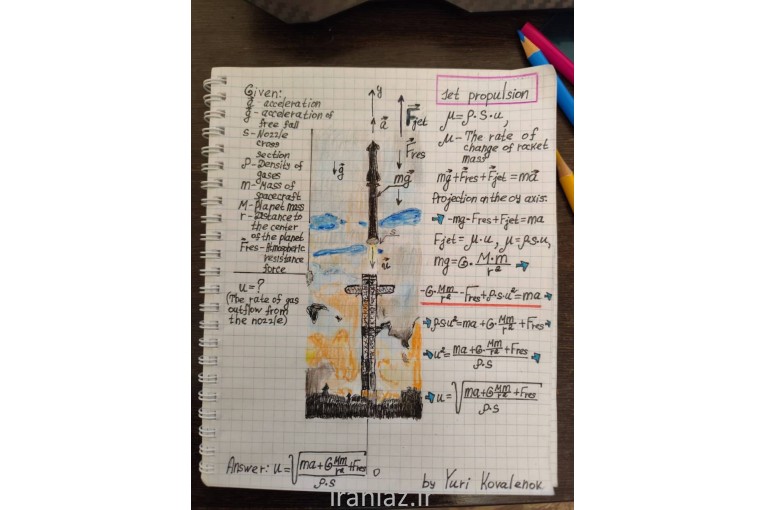 Given:
a⃗ - acceleration
g⃗ - acceleration of
free fall
S - Nozzle
cross
section
ρ - Density of
gases
m - Mass of
spacecraft
M - Planet mass
r - Distance to
the center
of the planet
F⃗res - Atmospheric
resistance
force
u = ?
(The rate of gas
outflow from
the nozzle)
y
a⃗
F⃗jet
F⃗res
g⃗
mg⃗
S
u⃗
0
Jet propulsion
μ = ρ·S·u,
μ - The rate of
change of rocket
mass
mg⃗ + F⃗res + F⃗jet = ma⃗
Projection on the oy axis:
⇒ -mg - Fres + Fjet = ma
Fjet = μ·u, μ = ρ·S·u,
mg = G·(M·m)/r² ⇒
-G·Mm/r² - Fres + ρ·S·u² = ma ⇒
⇒ ρSu² = ma + G·Mm/r² + Fres ⇒
⇒ u² = (ma + G·Mm/r² + Fres)/(ρ·S) ⇒
⇒ u = √((ma + G Mm/r² + Fres)/(ρ·S))
Answer: u = √((ma + G Mm/r² + Fres)/(ρ·S))
by Yuri Kovalenok
iraniaz.ir